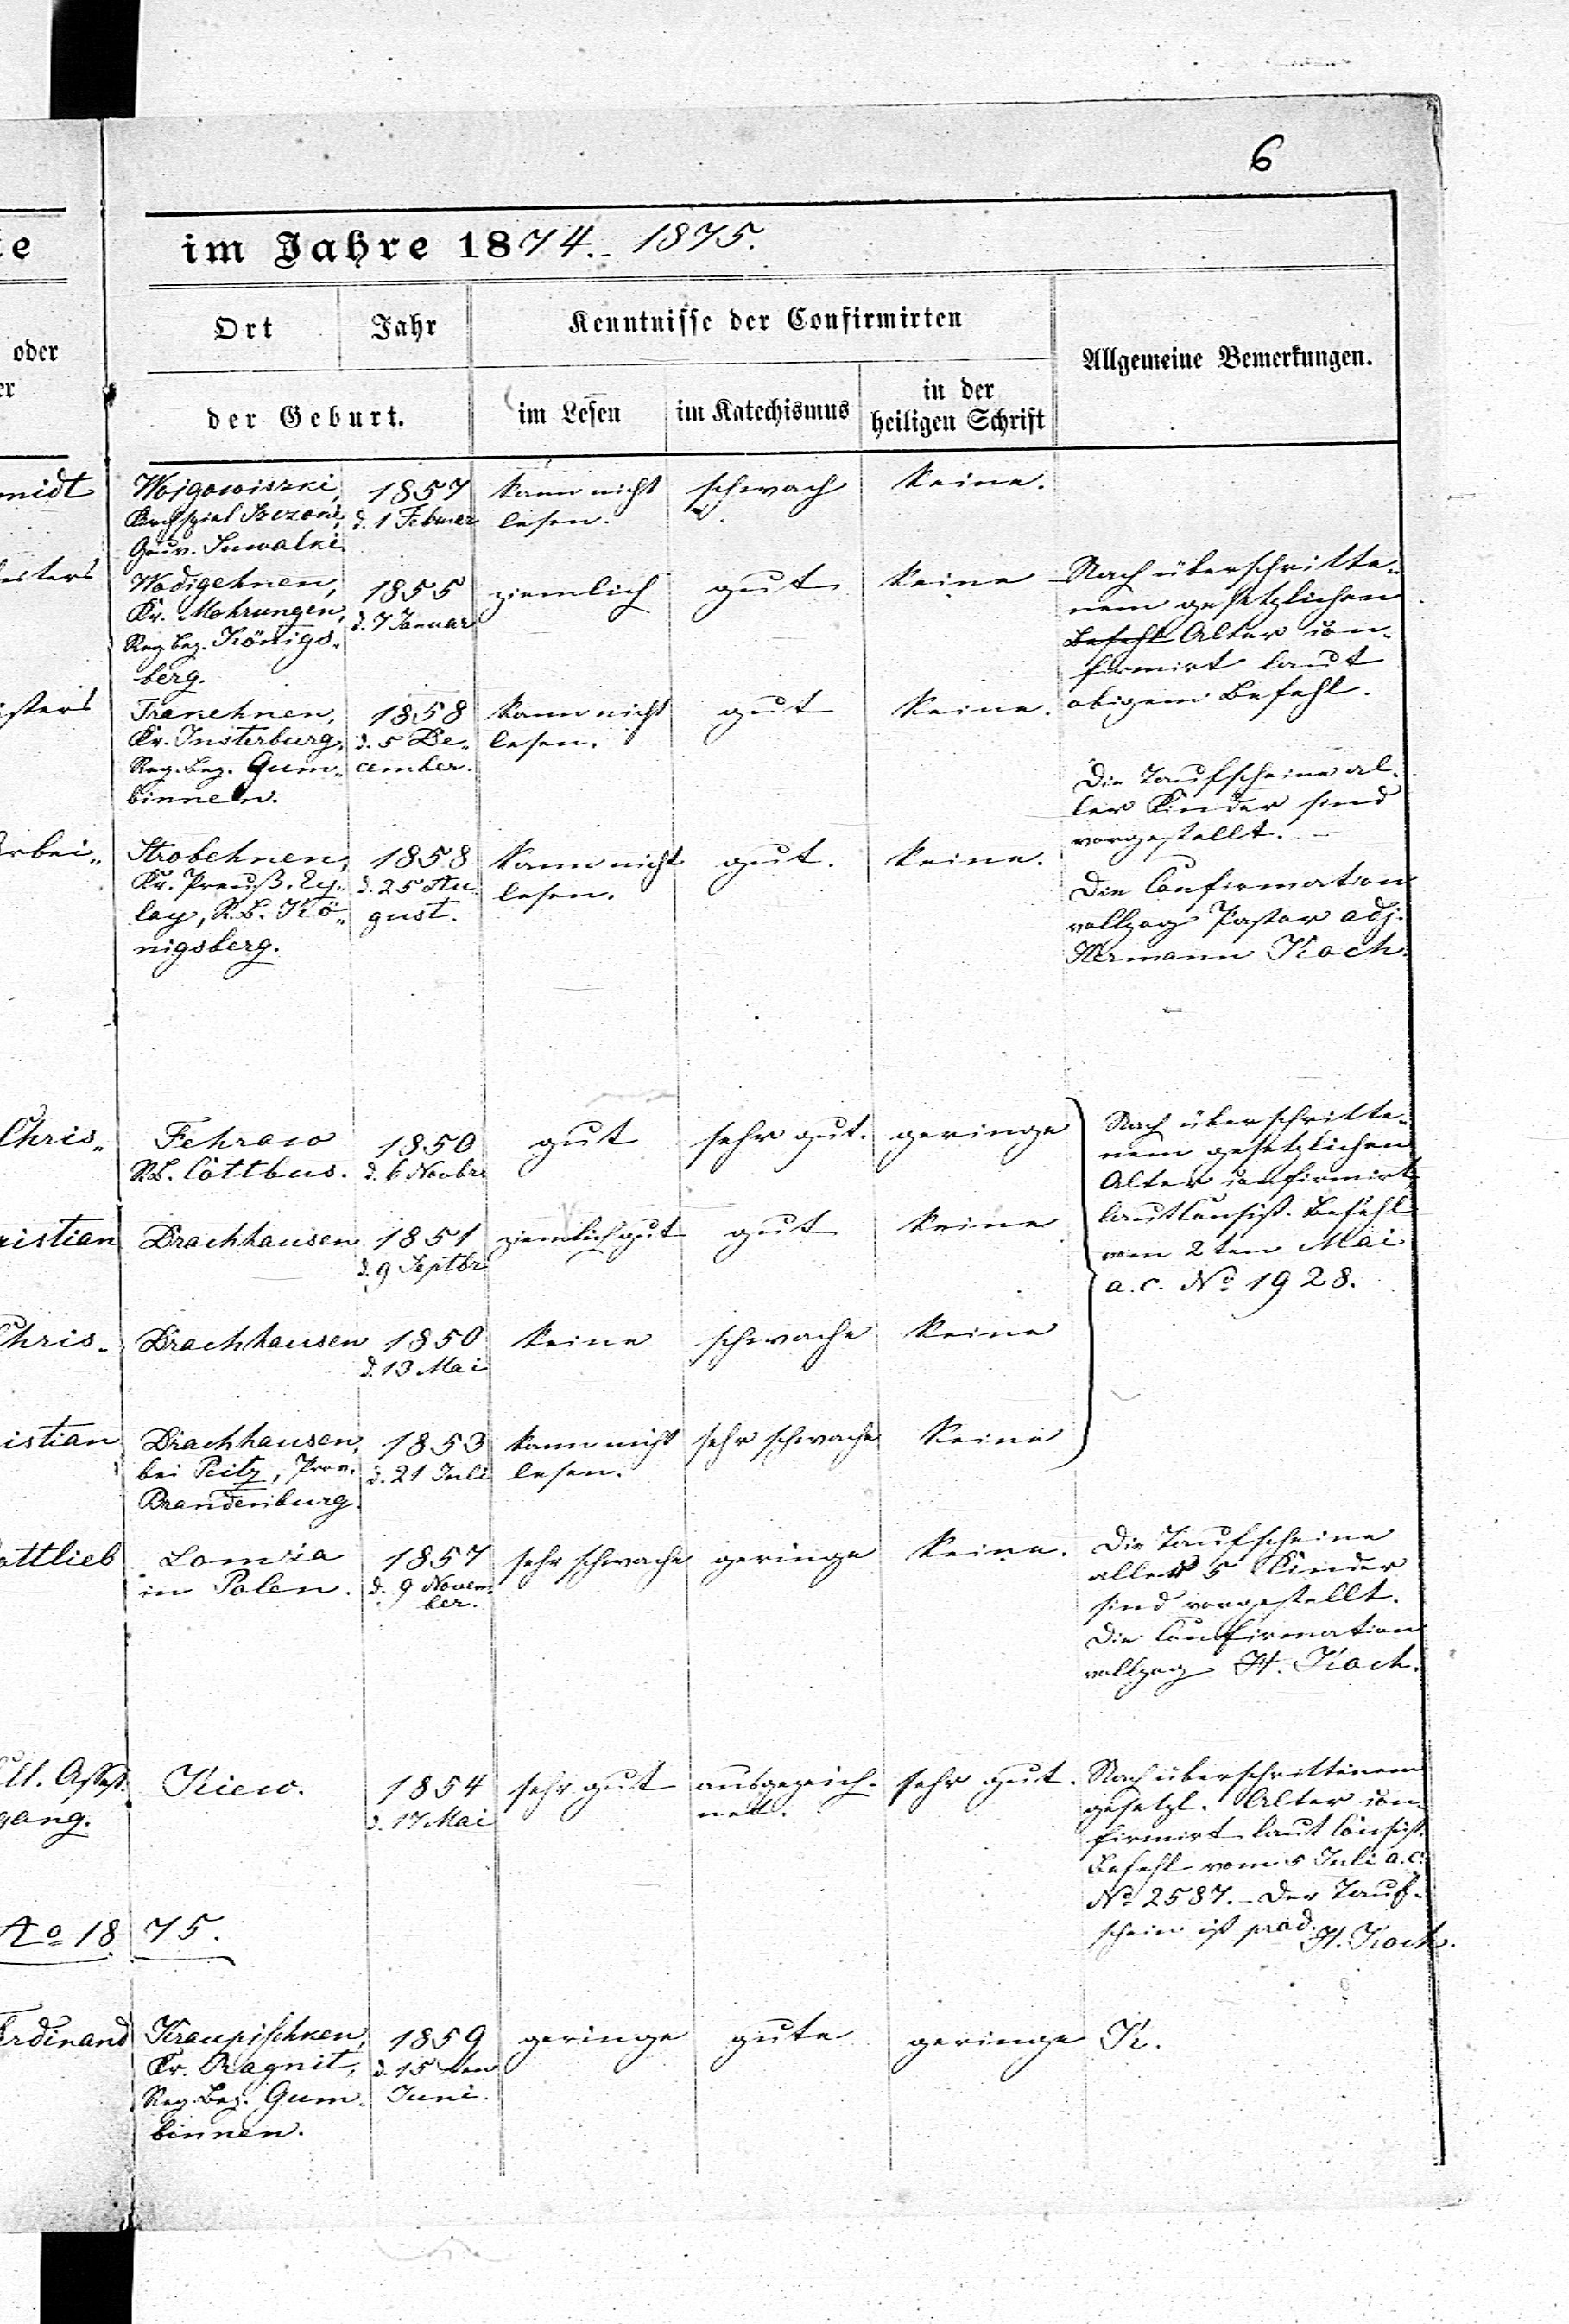 6
im Jahre 1874.- 1875.
Ort
Jahr
der Geburt.
Kenntnisse der Confirmirten
im Lesen
im Katechismus
in der
heiligen Schrift
Allgemeine Bemerkungen.
oder
er
midt
Wojgowiszki, 1857 kann nicht schwach keine.
Kirchspiel d. 1 Februar lesen.
Gouv. Suwalki
Wodigehnen, 1855 ziemlich gut keine
Kr. Mohrungen, d. 7 Januar
Reg. Bez. Königs-
berg.
Nach überschritte-
nem gesetzlichen
Befehl Alter con-
firmirt laut
obigem Befehl.
Tranehnen, 1858 kann nicht gut keine.
Kr. Insterburg, d. 5 De- lesen.
Reg. Bez. Gum- cember.
binnen.
Die Taufscheine al-
ler Kinder sind
vorgestellt. -
Arbei-
Strobehnen, 1858 kann nicht gut. keine.
Kr. Preuß. Ey- d. 25 Au- lesen.
lau, R. B. Kö- gust.
nigsberg.
Die Confirmation
vollzog Pastor adj.
Hermann Koch.
Chris-
Fehrow 1850 gut sehr gut. geringe
R.B. Cottbus. d. 6 Novbr.
Nach überschritte-
nem gesetzlichen
Alter confirmirt,
laut Consist. Befehl
vom 2ten Mai
a. c. No 1928.
ristian Drachhausen 1851 ziemlich gut gut keine
d. 9 Septbr
Chris- Drachhausen 1850 keine schwache keine
d. 13 Mai
istian Drachhausen, 1853 kann nicht sehr schwache keine
bei Peitz, Prov. d. 21 Juli lesen.
Brandenburg.
ottlieb Lomża 1857 sehr schwache geringe keine.
in Polen. d. 9 Novem-
ber.
Die Taufscheine
aller 5 Kinder
sind vorgestellt.
Die Confirmation
vollzog H. Koch.
Coll. Assess.
gang.
Kiew. 1854 sehr gut ausgezeich- sehr gut.
d. 17 Mai net.
Nach überschrittenem
gesetzl. Alter con-
firmirt laut Consist.
Befehl vom 5 Juli a. c.
No 2587. - Der Tauf-
schein ist prod.
H. Koch.
Ao 18 75.
Ferdinand Kraupischken, 1859 geringe gute geringe K.
Kr. Ragnit, d. 15 ten
Reg. Bez. Gum- Juni.
binnen.